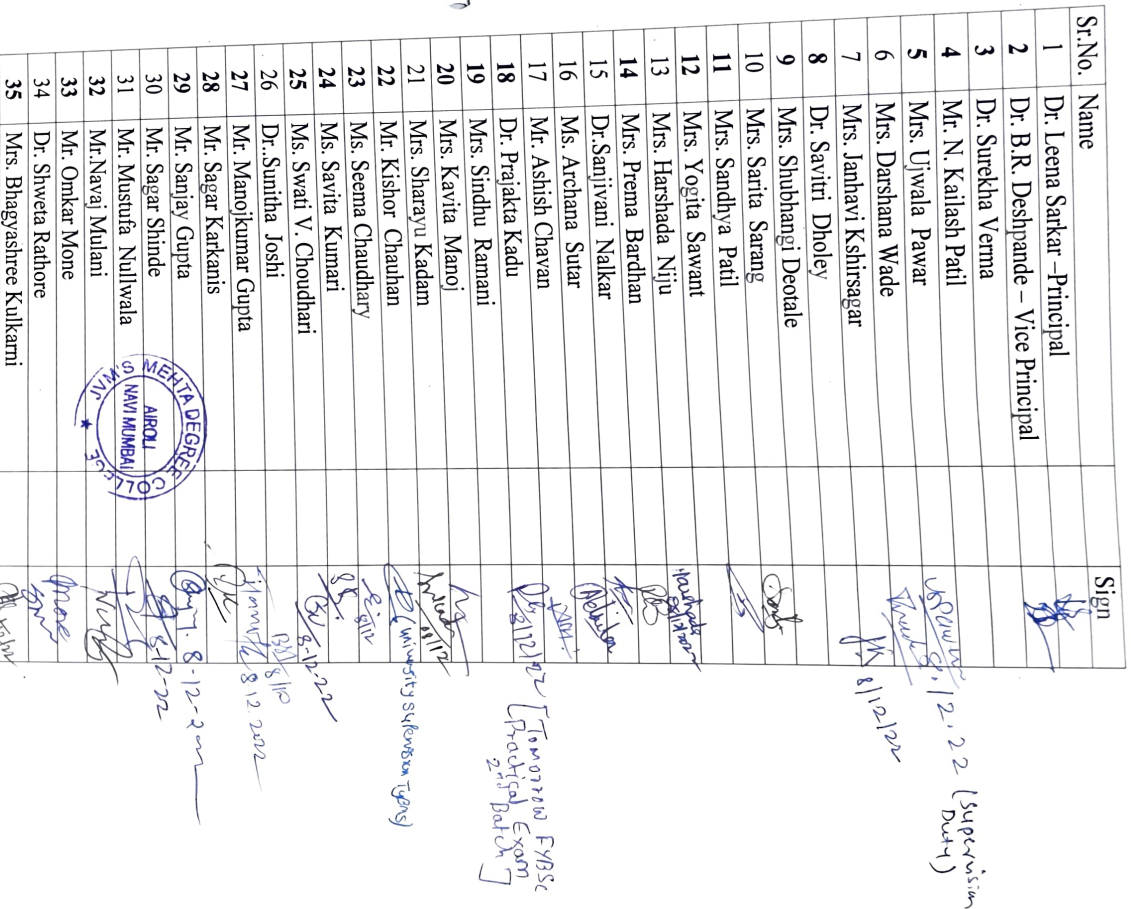 Sr.No. Name Sign
1 Dr. Leena Sarkar –Principal
2 Dr. B.R. Deshpande – Vice Principal
3 Dr. Surekha Verma
4 Mr. N. Kailash Patil
5 Mrs. Ujwala Pawar 8.12.22 (Supervision Duty)
6 Mrs. Darshana Wade
7 Mrs. Janhavi Kshirsagar 8/12/22
8 Dr. Savitri Dholey
9 Mrs. Shubhangi Deotale
10 Mrs. Sarita Sarang
11 Mrs. Sandhya Patil
12 Mrs. Yogita Sawant
13 Mrs. Harshada Niju
14 Mrs. Prema Bardhan
15 Dr.Sanjivani Nalkar
16 Ms. Archana Sutar
17 Mr. Ashish Chavan
18 Dr. Prajakta Kadu 8/12/22 [Tomorrow FYBSc
Practical Exam
2nd Batch]
19 Mrs. Sindhu Ramani
20 Mrs. Kavita Manoj
21 Mrs. Sharayu Kadam
22 Mr. Kishor Chauhan
23 Ms. Seema Chaudhary
24 Ms. Savita Kumari
25 Ms. Swati V. Choudhari 8-12-22
26 Dr..Sunitha Joshi
27 Mr. Manojkumar Gupta 8.12.2022
28 Mr. Sagar Karkanis
29 Mr. Sanjay Gupta
30 Mr. Sagar Shinde 8-12-22
31 Mr. Mustufa Nullwala
32 Mr.Navaj Mulani
33 Mr. Omkar Mone
34 Dr. Shweta Rathore
35 Mrs. Bhagyashree Kulkarni
JVM'S MEHTA DEGREE COLLEGE
AIROLI
NAVI MUMBAI